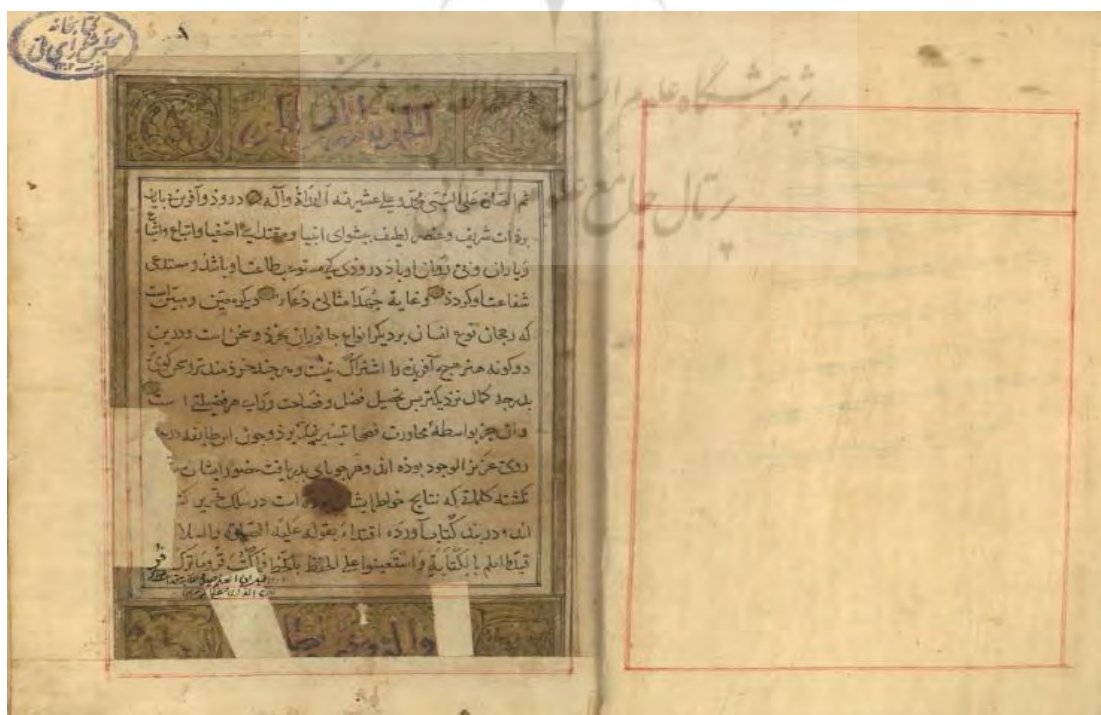 کتابخانه
مجلس شورای ملی
پژوهشگاه علوم انسانی و مطالعات فرهنگی
پرتال جامع علوم انسانی
ثم الصلوة علی النبی محمد و علی عشیرته وآله درود و آفرین
بر ذات شریف و عنصر لطیف پیشوای انبیا و مقتدای اصفیا و اتباع واشیا
و یاران وی و روان او باد درودی که مستوجب طاعت او باشد و مستدعی
شفاعت او کردد وغایة جهد امثالی دعاء دیکر معین و مبین است
که رجحان نوع انسان بر دیکر انواع جانوران بخرد و سخن است و درین
دو کونه هنر هیچ آفریده را اشتراک نیست و هر چند خردمندتر و سخن کوی
بدرجه کمال نزدیکتر بس تحصیل فضل و فصاحت ورای هر فضیلتی است
وآن جز بواسطهٔ محاورت فصحا تیسیر نپذیرد و چون این طایفه
روی عزیز الوجود بوده اند و هر جویای بدریافت حضور ایشان
نکشته کلماتی که نتایج خواطر است در سلک تحریر
اند و در بند کتاب آورده اقتداء بقوله علیه الصلوة والسلا
قیدوا العلم بالکتابة واستعینوا علی الحفظ